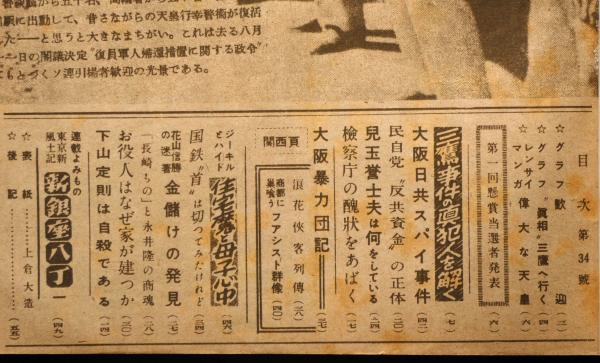 駅に出動して、昔さながらの天皇行幸警衛が復活
した――と思うと大きなまちがい。これは去る八月
十一日の閣議決定“復員軍人帰還措置に関する政令”
にもとづくソ連引揚者歓迎の光景である。
目次 第34號
☆グラフ 歓迎 (二)
☆グラフ “眞相”三鷹へ行く (四)
☆レンサイマンガ 偉大な天皇 (六)
第一回懸賞当選者発表 (一六)
三鷹事件の真犯人を解く (七)
大阪日共スパイ事件 (四二)
民自党“反共資金”の正体 (一一)
兒玉誉士夫は何をしている
検察庁の醜状をあばく
大阪暴力団記 (三七)
関西頁
浪花侠客列傳 (三八)
商都に巣喰う ファシスト群像 (四〇)
ジーキルとハイド 住宅営団母子心中 (四六)
国鉄“首”は切つてみたけれど (三四)
花山信勝の迷著 金儲けの発見 (二七)
「長崎もの」と永井隆の商魂 (二八)
お役人はなぜ家が建つか (三〇)
下山定則は自殺である (一四)
連載よみもの
東京新風土記 新銀座八丁 (四九)
☆表紙 上倉大造
☆後記 (五五)